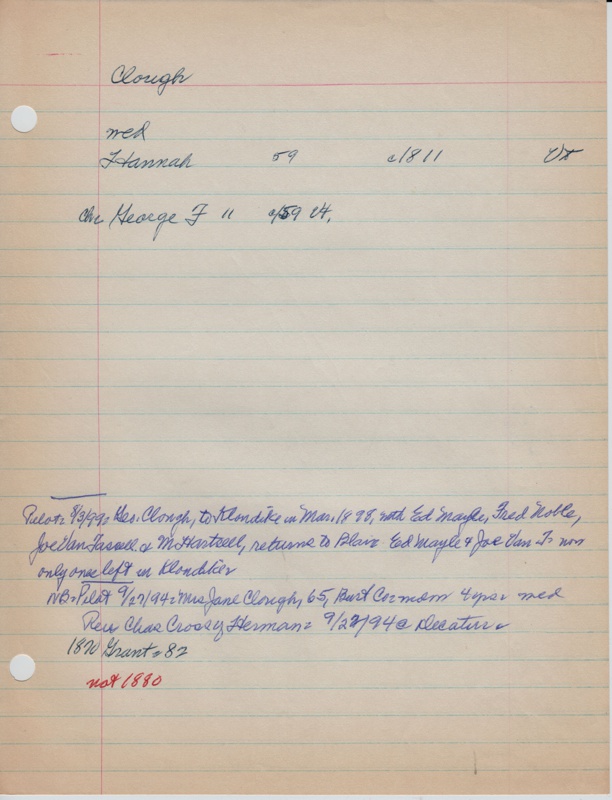 Clough
med
Hannah 59 c1811 Vt
Ch: George F 11 c/59 Vt.
Pilot: 8/3/99: Geo. Clough, to Klondike in Mar. 1898, with Ed Mayle, Fred Noble,
Joe Van Tassell & M. Hartzell, returns to Blair Ed Mayle & Joe Van T. now
only ones left in Klondike
NB: Pilot 9/27/94: Mrs Jane Clough, 65, Burt Co: 4 yrs med
Rev Chas Cross Herman: 9/22/94 @ Decatur
1870 Grant: 82
not 1880